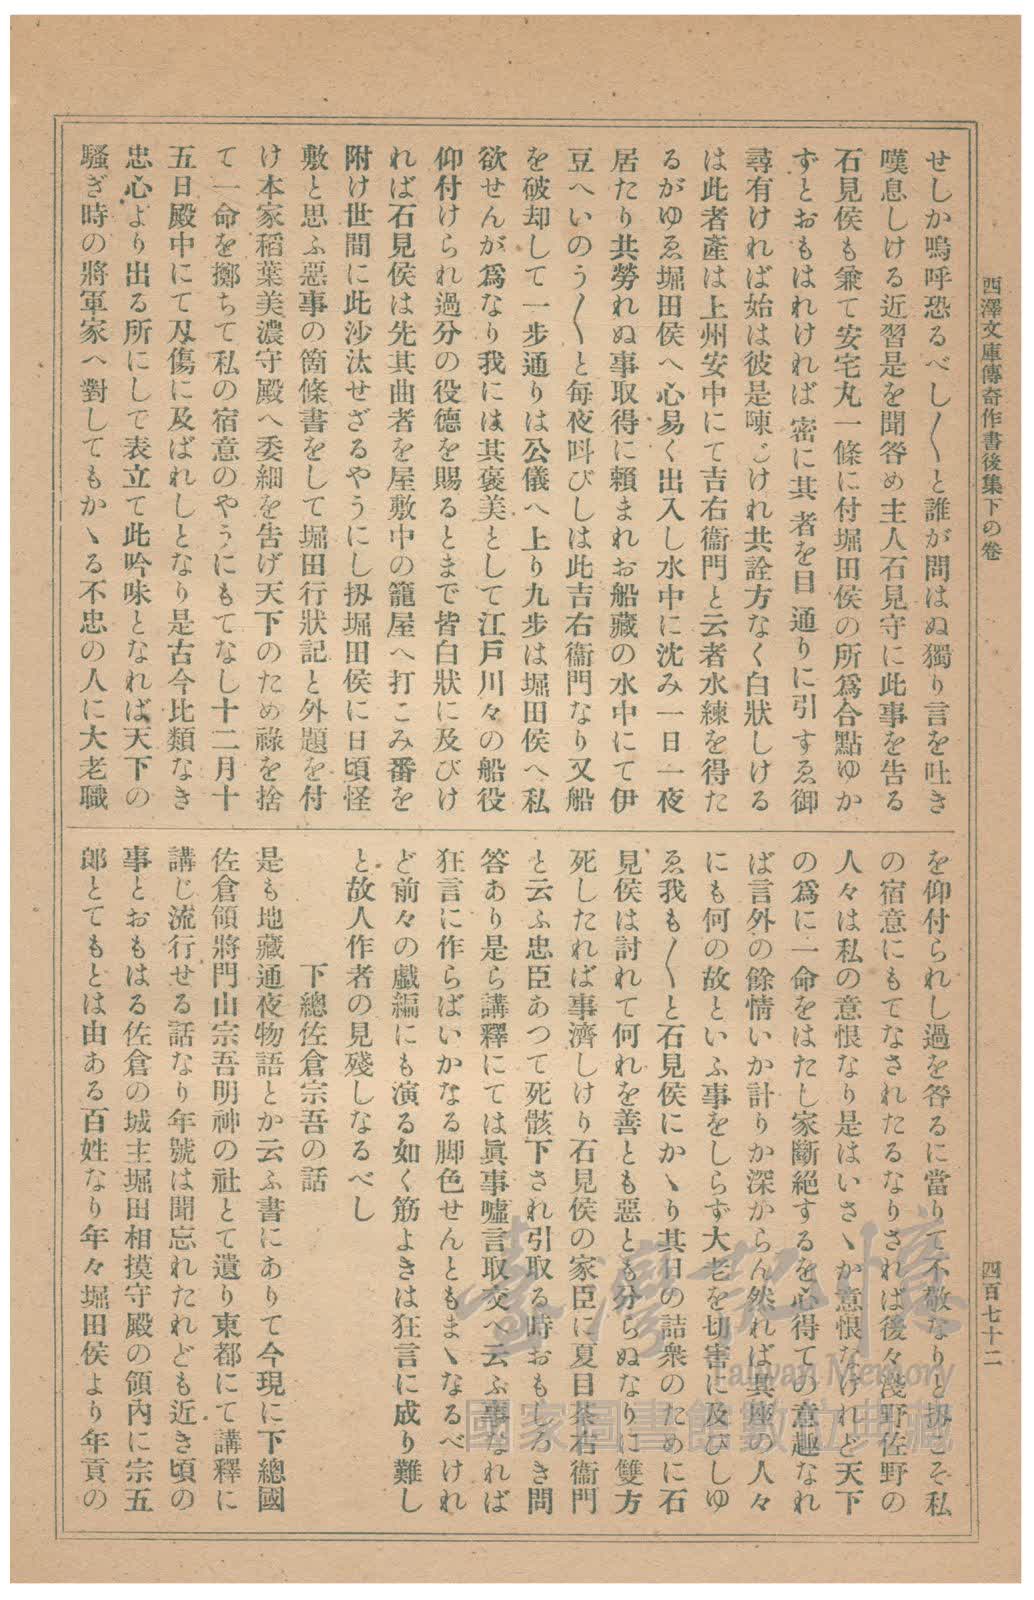 西澤文庫傳奇作書後集下の卷
四百七十二
せしか嗚呼恐るべし〳〵と誰が問はぬ獨り言を吐き
嘆息しける近習是を聞咎め主人石見守に此事を告る
石見侯も兼て安宅丸一條に付堀田侯の所爲合點ゆか
ずとおもはれければ密に其者を目通りに引すゑ御
尋有ければ始は彼是陳ごけれ共詮方なく白狀しける
は此者產は上州安中にて吉右衞門と云者水練を得た
るがゆゑ堀田侯へ心易く出入し水中に沈み一日一夜
居たり共勞れぬ事取得に賴まれお船藏の水中にて伊
豆へいのう〳〵と每夜呌びしは此吉右衞門なり又船
を破却して一步通りは公儀へ上り九步は堀田侯へ私
欲せんが爲なり我には其褒美として江戶川々の船役
仰付けられ過分の役德を賜るとまで皆白狀に及びけ
れば石見侯は先其曲者を屋敷中の籠屋へ打こみ番を
附け世間に此沙汰せざるやうにし扨堀田侯に日頃怪
敷と思ふ惡事の箇條書をして堀田行狀記と外題を付
け本家稻葉美濃守殿へ委細を吿げ天下のため祿を捨
て一命を擲ちて私の宿意のやうにもてなし十二月十
五日殿中にて刄傷に及ばれしとなり是古今比類なき
忠心より出る所にしで表立て此吟味となれば天下の
騷ぎ時の將軍家へ對してもかヽる不忠の人に大老職
を仰付られし過を咎るに當りて不敬なりと扨こそ私
の宿意にもてなされたるなりされば後々淺野佐野の
人々は私の意恨なり是はいさヽか意恨なけれど天下
の爲に一命をはたし家斷絕するを心得ての意趣なれ
ば言外の餘情いか計りか深からん然れば其座の人々
にも何の故といふ事をしらず大老を切害に及びしゆ
ゑ我も〳〵と石見侯にかヽり其日の詰衆のために石
見侯は討れて何れを善とも惡とも分らぬなりに雙方
死したれば事濟しけり石見侯の家臣に夏目茶右衞門
と云ふ忠臣あつて死骸下され引取る時おもしろき問
答あり是ら講釋にては眞事噓言取交へ云ふ事なれば
狂言に作らばいかなる脚色せんともまヽなるべけれ
ど前々の戲編にも演る如く筋よきは狂言に成り難し
と故人作者の見殘しなるべし
下總佐倉宗吾の話
是も地藏通夜物語とか云ふ書にありて今現に下總國
佐倉領將門山宗吾明神の社とて遺り東都にて講釋に
講じ流行せる話なり年號は聞忘れたれども近き頃の
事とおもはる佐倉の城主堀田相摸守殿の領內に宗五
郎とてもとは由ある百姓なり年々堀田侯より年貢の
臺灣記憶
Taiwan Memory
國家圖書館數位典藏